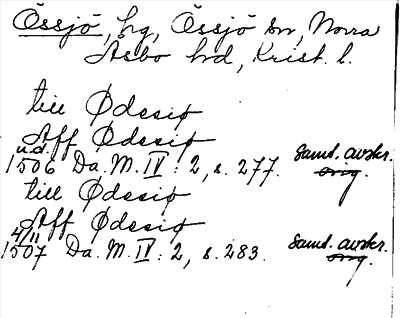 Össjö, hg, Össjö sn, Norra
Åsbo hd, Krist. l.
till Ødessiø
Aff Ødessiø
u.d.
1506 Da. M. IV: 2, s. 277. Saml. avskr.
orig.
till Ødessiø
Aff Ødessiø
4/11
1507 Da. M. IV: 2, s. 283. Saml. avskr.
orig.